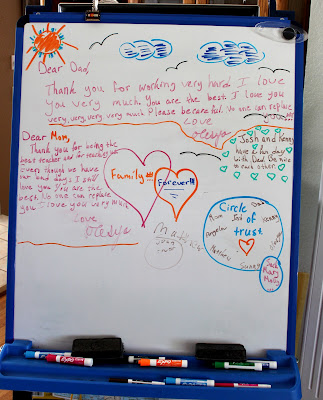 Dear Dad,
Thank you for working very hard. I love
you very much. You are the best. I love you
very, very, very very much. Please be careful. No one can replace
you
Love
Olesya
Dear Mom,
Thank you for being the
best teacher and for teaching us
even though we have
our bad days. I still
love you. You are the
best. No one can replace
you. I love you very much.
Love
Olesya
Josh and Kenny
have a fun day
with Dad. Be nice
to each other.
Family!!!
Forever!!!
Circle
of
trust
Mom
Josh
Dad
Kenny
Angelina
Matthew
Sunny
Jack
Mary